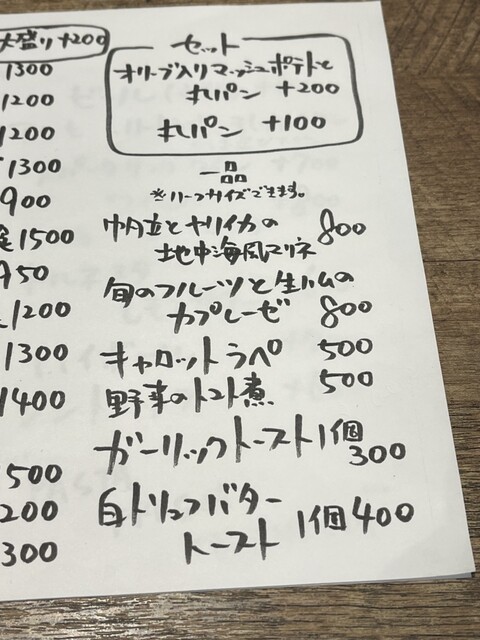 大盛り+200
1300
1200
1200
1300
900
1500
950
1200
1300
1400
500
200
300
セット
オリーブ入りマッシュポテトと
丸パン +200
丸パン +100
一品
※ハーフサイズできます。
帆立とヤリイカの
地中海風マリネ 800
旬のフルーツと生ハムの
カプレーゼ 800
キャロットラペ 500
野菜のトマト煮 500
ガーリックトースト1個
300
白トリュフバター
トースト 1個400